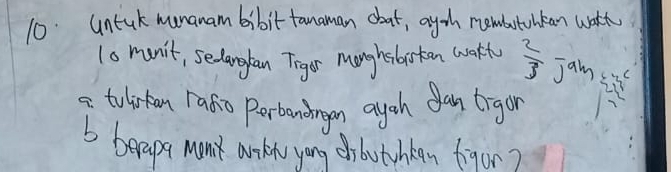 10. Untuk menanam bibit tanaman obat, ayah membutuhkan waktu
10 menit, sedangkan Tigor menghabiskan waktu 2/3 jam
a. tuliskan rasio perbandingan ayah dan tigor
b berapa menit waktu yang dibutuhkan tigor?